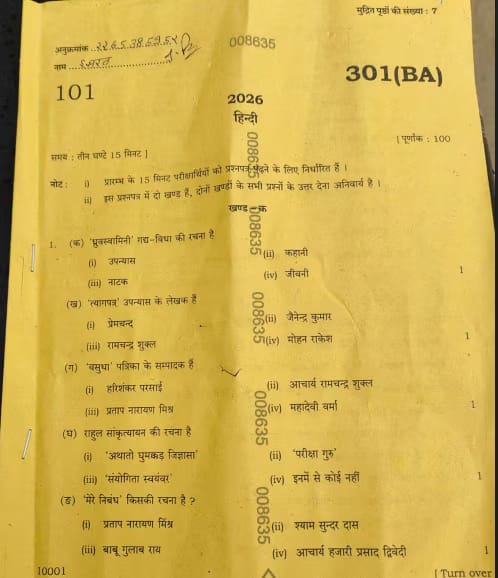 मुद्रित पृष्ठों की संख्या : 7
अनुक्रमांक
नाम
008635
101
301(BA)
2026
हिन्दी
समय : तीन घण्टे 15 मिनट ]
[ पूर्णांक : 100
नोट : i) प्रारम्भ के 15 मिनट परीक्षार्थियों को प्रश्नपत्र पढ़ने के लिए निर्धारित हैं ।
ii) इस प्रश्नपत्र में दो खण्ड हैं, दोनों खण्डों के सभी प्रश्नों के उत्तर देना अनिवार्य है ।
खण्ड - क
1. (क) 'ध्रुवस्वामिनी' गद्य-विधा की रचना है
(i) उपन्यास (ii) कहानी
(iii) नाटक (iv) जीवनी 1
(ख) 'त्यागपत्र' उपन्यास के लेखक हैं
(i) प्रेमचन्द (ii) जैनेन्द्र कुमार
(iii) रामचन्द्र शुक्ल (iv) मोहन राकेश 1
(ग) 'वसुधा' पत्रिका के सम्पादक हैं
(i) हरिशंकर परसाई (ii) आचार्य रामचन्द्र शुक्ल
(iii) प्रताप नारायण मिश्र (iv) महादेवी वर्मा 1
(घ) राहुल सांकृत्यायन की रचना है
(i) 'अथातो घुमक्कड़ जिज्ञासा' (ii) 'परीक्षा गुरु'
(iii) 'संयोगिता स्वयंवर' (iv) इनमें से कोई नहीं 1
(ङ) 'मेरे निबंध' किसकी रचना है ?
(i) प्रताप नारायण मिश्र (ii) श्याम सुन्दर दास
(iii) बाबू गुलाब राय (iv) आचार्य हजारी प्रसाद द्विवेदी 1
10001
[ Turn over
008635
008635
008635
008635
008635